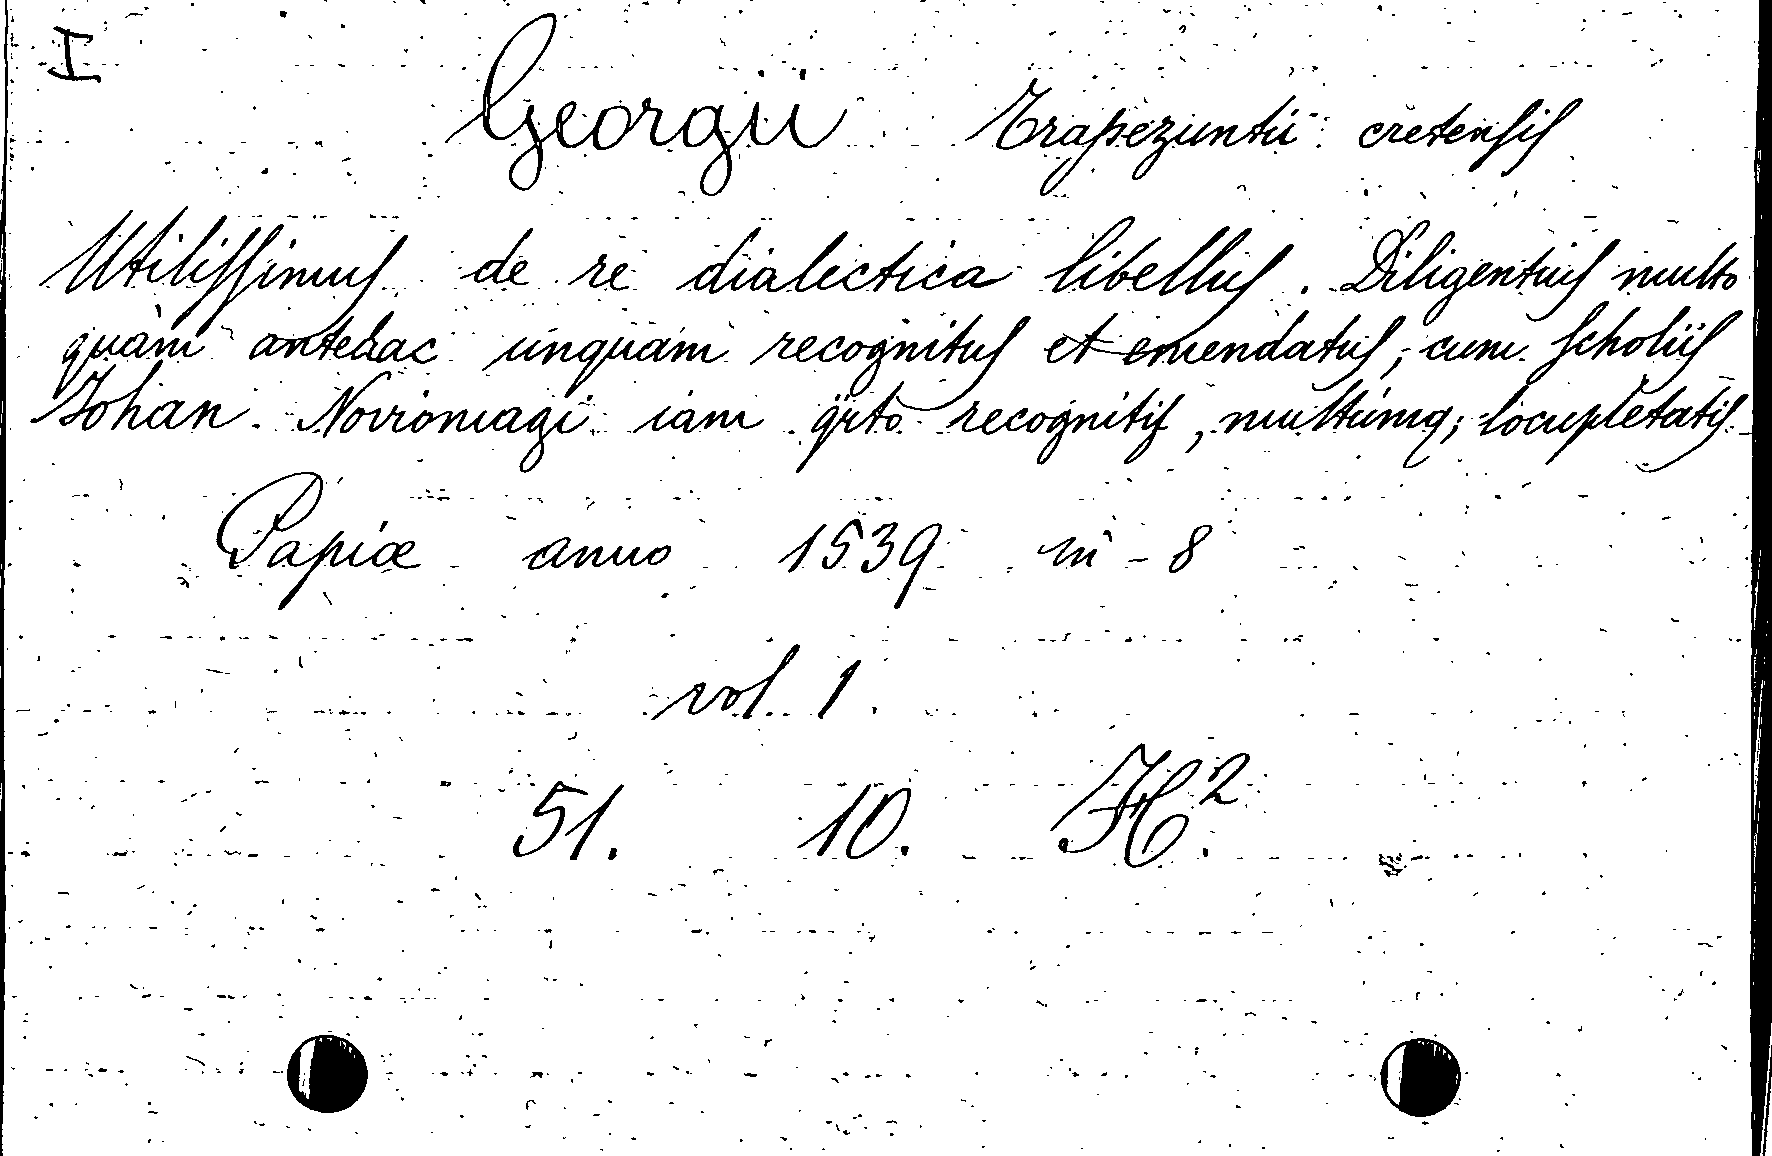 I
Georgii Trapezuntii cretensis
Utilissimus de re dialectica libellus. Diligentius multo
quam antehac unquam recognitus et emendatus, cum scholiis
Johan. Noviomagi iam qrto recognitis, multumq; locupletatis
Papiæ anno 1539 in-8
vol. 1.
51. 10. H².